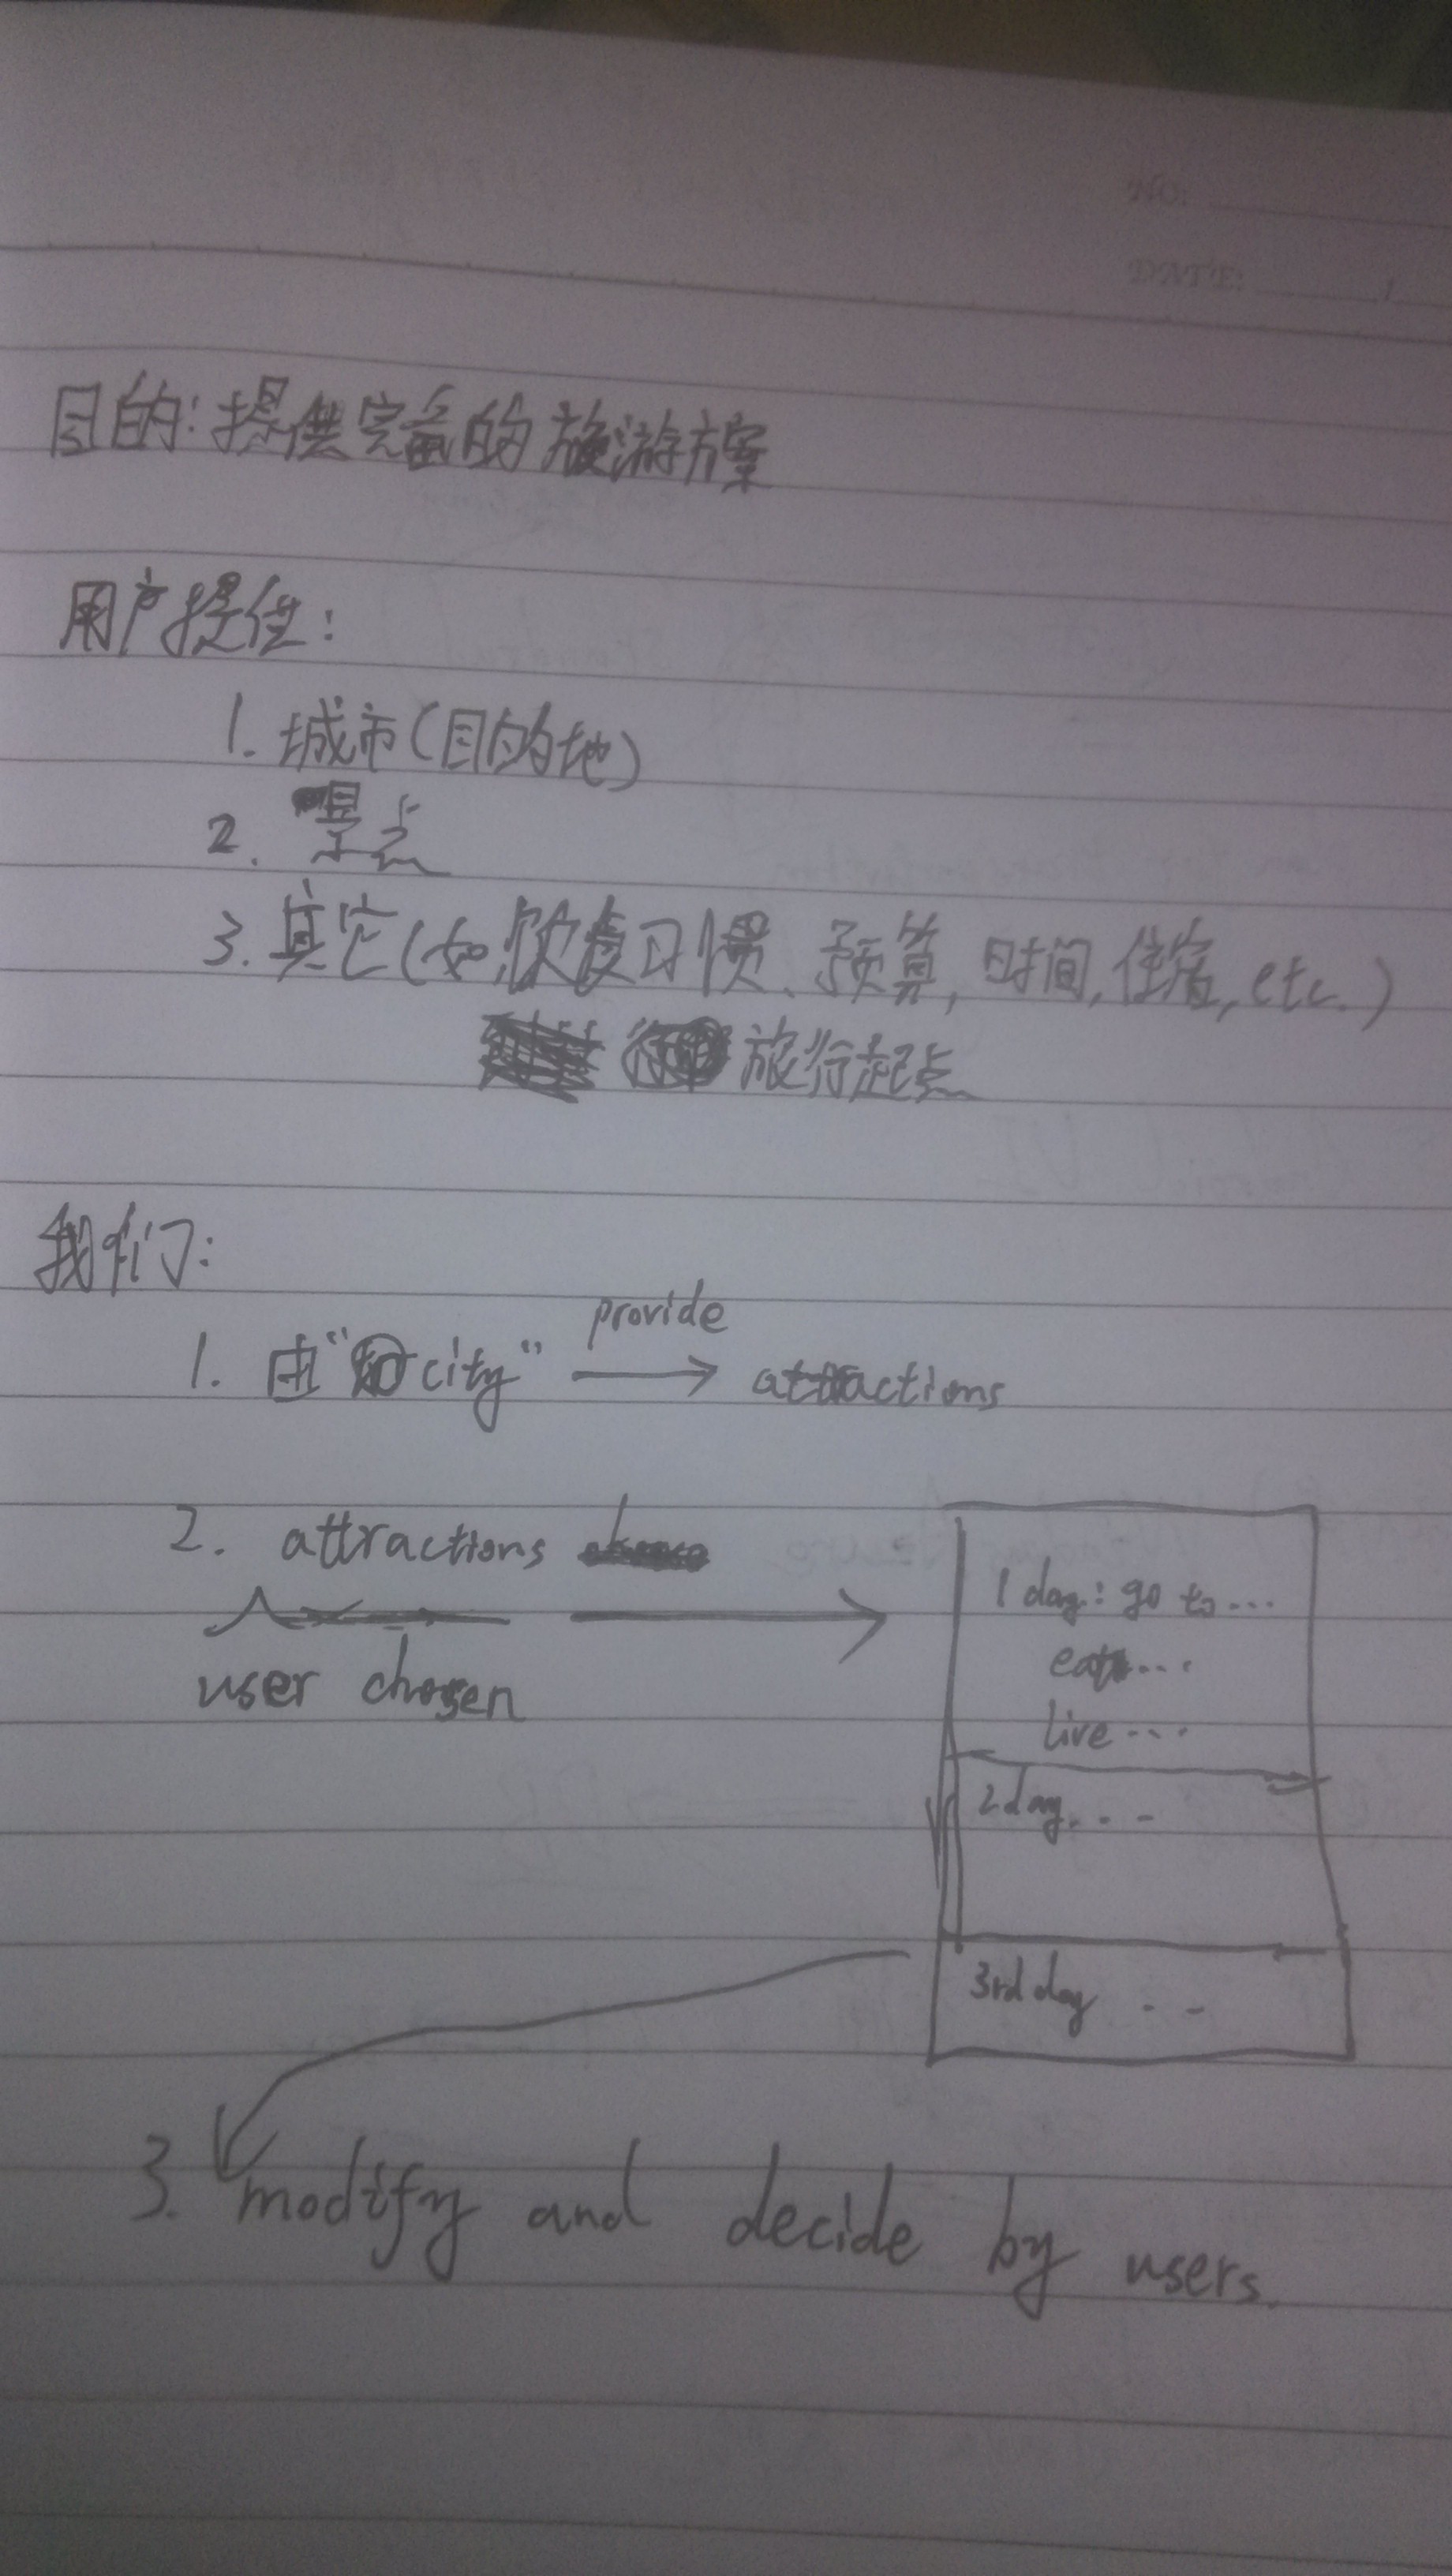 NO:
DATE:
目的: 提供完备的旅游方案
用户提供:
1. 城市(目的地)
2. 景点
3. 其它(如,饮食习惯、预算, 时间, 住宿, etc.)
旅行起点
我们:
1. 由"city" provide → attractions
2. attractions
user chosen
1 day: go to ...
eat ...
live ...
2 day . . .
3rd day . .
3. modify and decide by users.